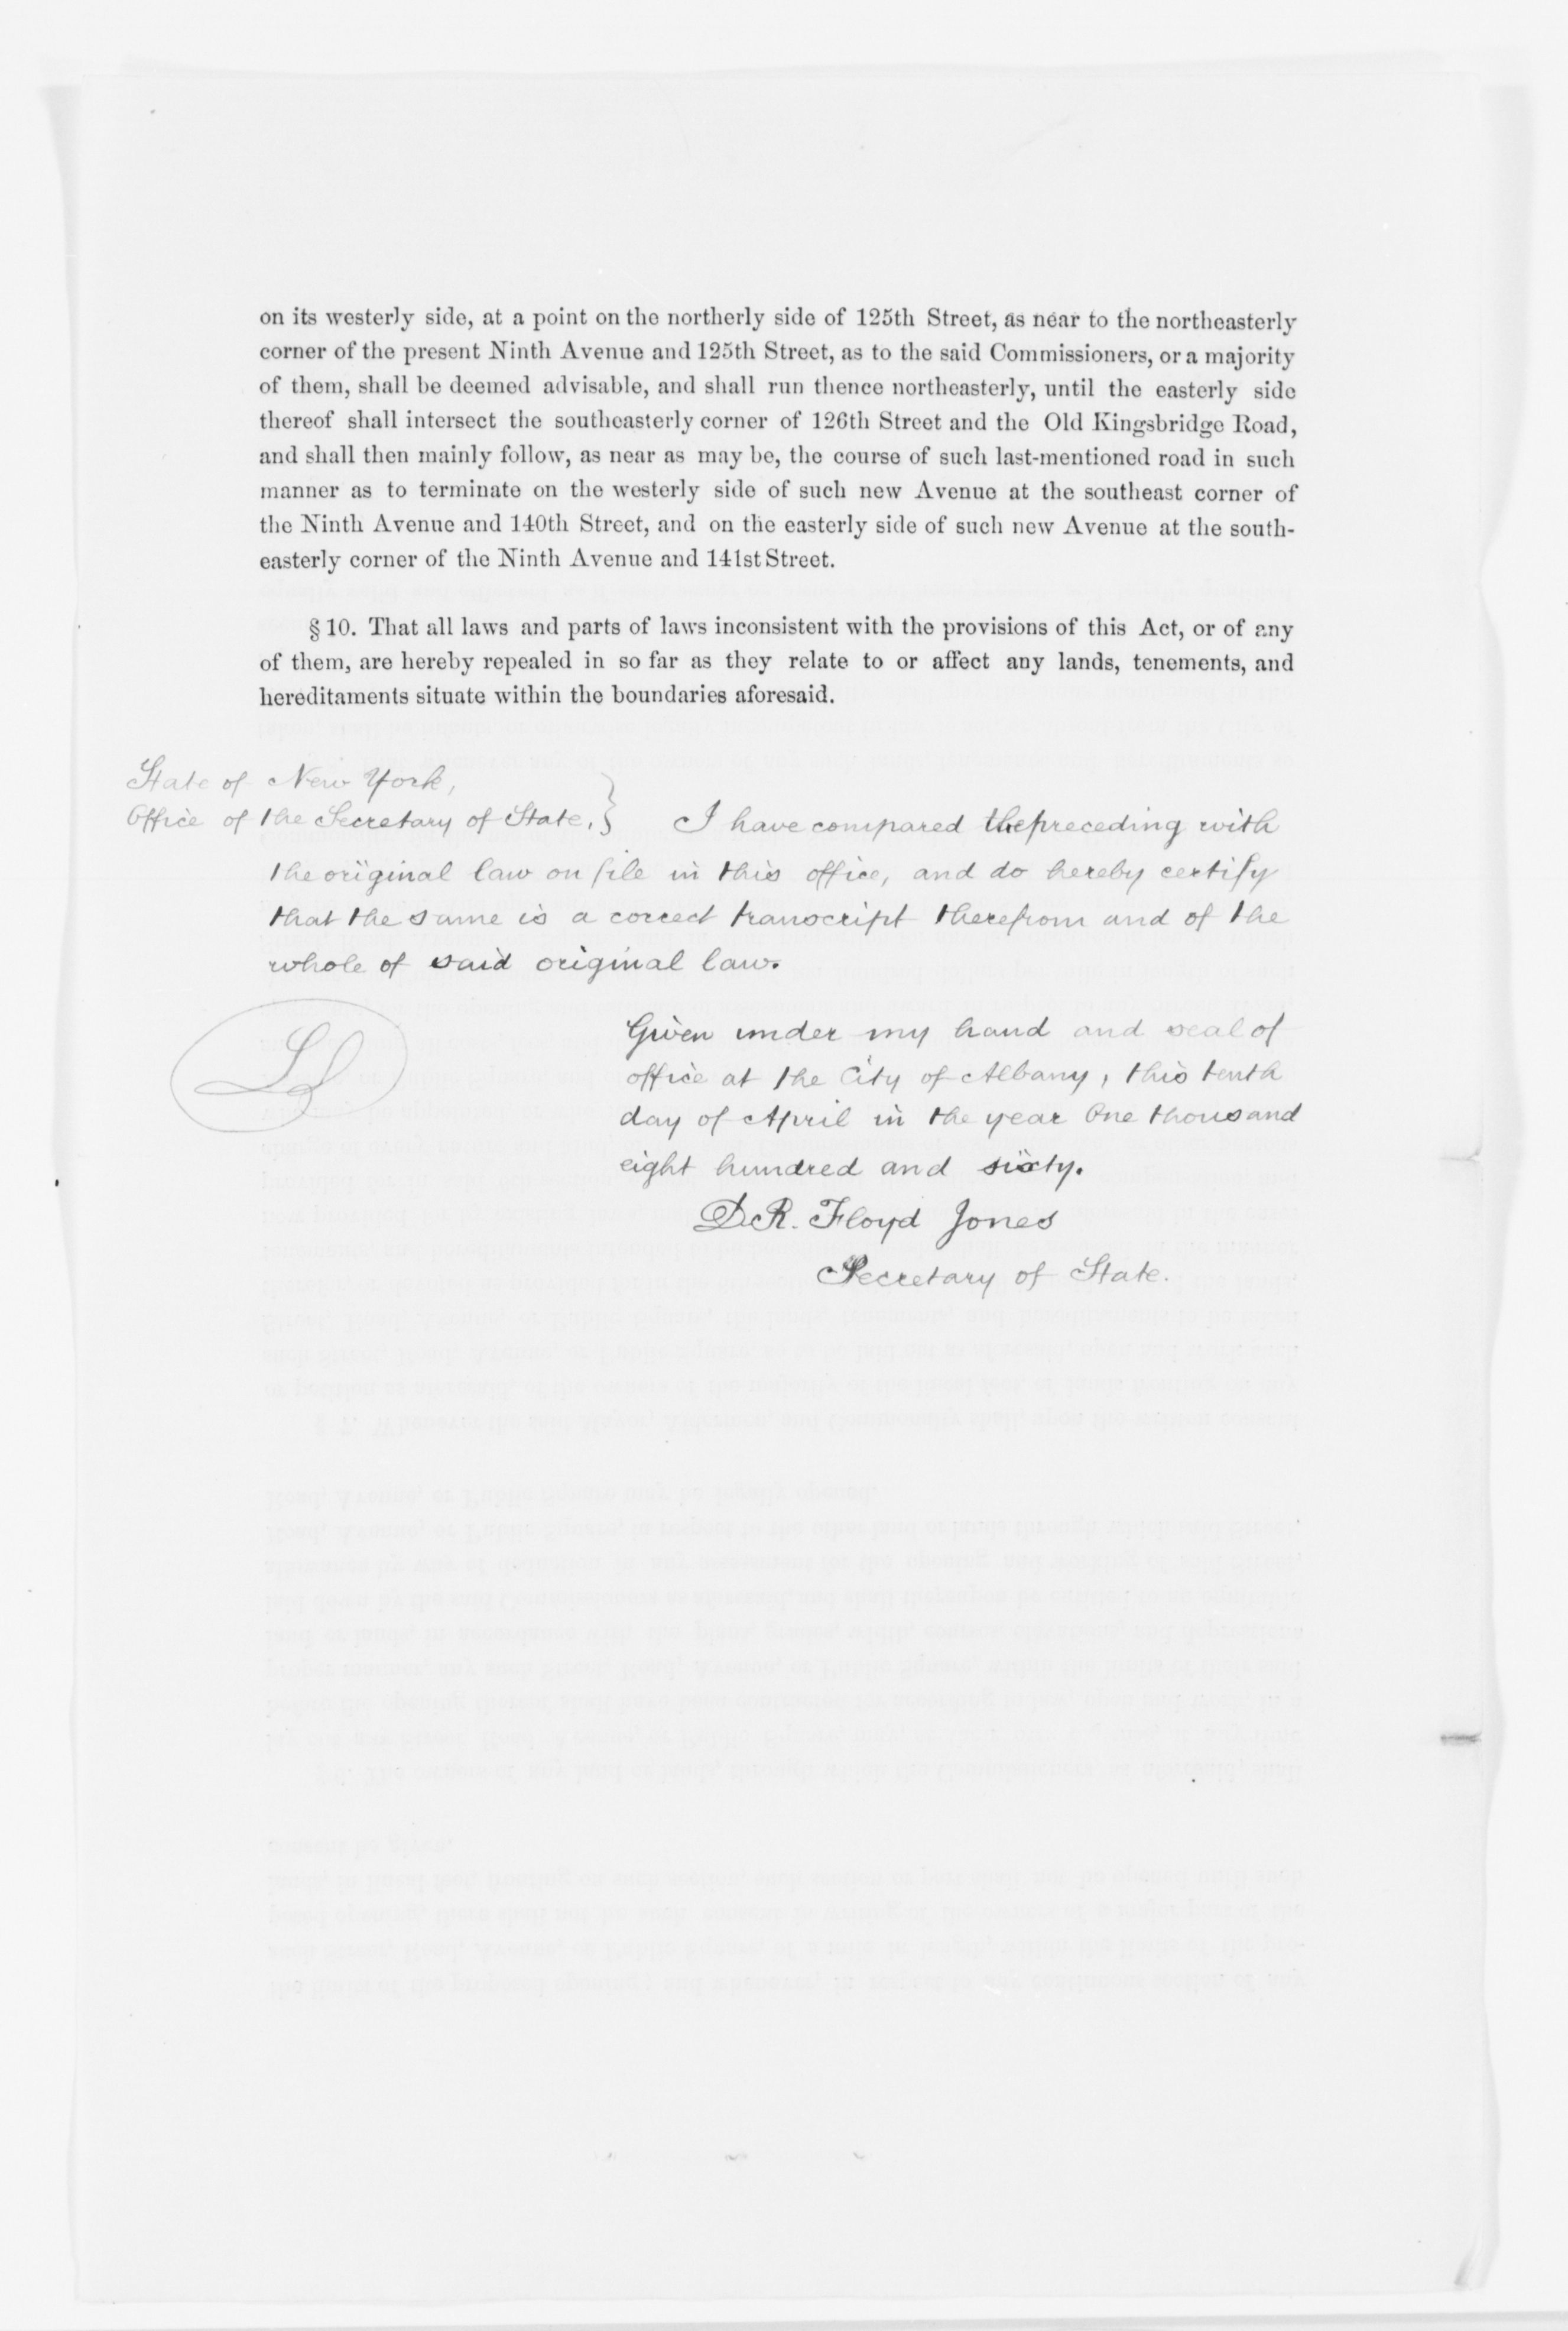 on its westerly side, at a point on the northerly side of 125th Street, as near to the northeasterly
corner of the present Ninth Avenue and 125th Street, as to the said Commissioners, or a majority
of them, shall be deemed advisable, and shall run thence northeasterly, until the easterly side
thereof shall intersect the southeasterly corner of 126th Street and the Old Kingsbridge Road,
and shall then mainly follow, as near as may be, the course of such last-mentioned road in such
manner as to terminate on the westerly side of such new Avenue at the southeast corner of
the Ninth Avenue and 140th Street, and on the easterly side of such new Avenue at the south-
easterly corner of the Ninth Avenue and 141st Street.
§ 10. That all laws and parts of laws inconsistent with the provisions of this Act, or of any
of them, are hereby repealed in so far as they relate to or affect any lands, tenements, and
hereditaments situate within the boundaries aforesaid.
State of New York,
Office of the Secretary of State, } I have compared the preceding with
the original law on file in this office, and do hereby certify
that the same is a correct transcript therefrom and of the
whole of said original law.
LS
Given under my hand and seal of
office at the City of Albany, this tenth
day of April in the year One thousand
eight hundred and sixty.
D.R. Floyd Jones
Secretary of State.